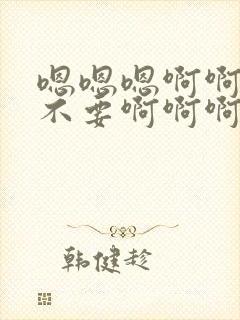 嗯嗯嗯啊啊
不要啊啊啊
韩健趁